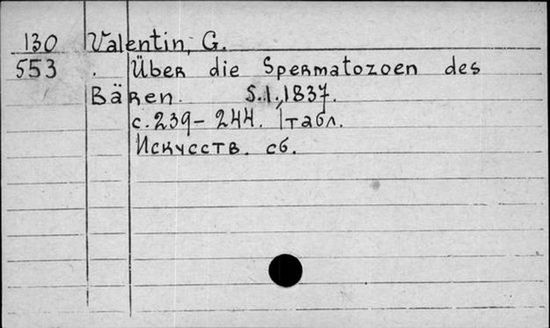 130 Valentin, G.
553 . Über die Spermatozoen des
Bären. S.l., 1837.
с. 239-244. 1 табл.
Искусств. сб.